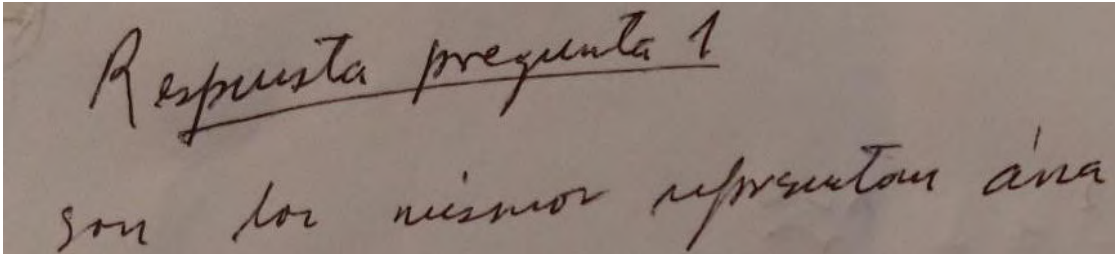 Respuesta pregunta 1
son los mismos representan área